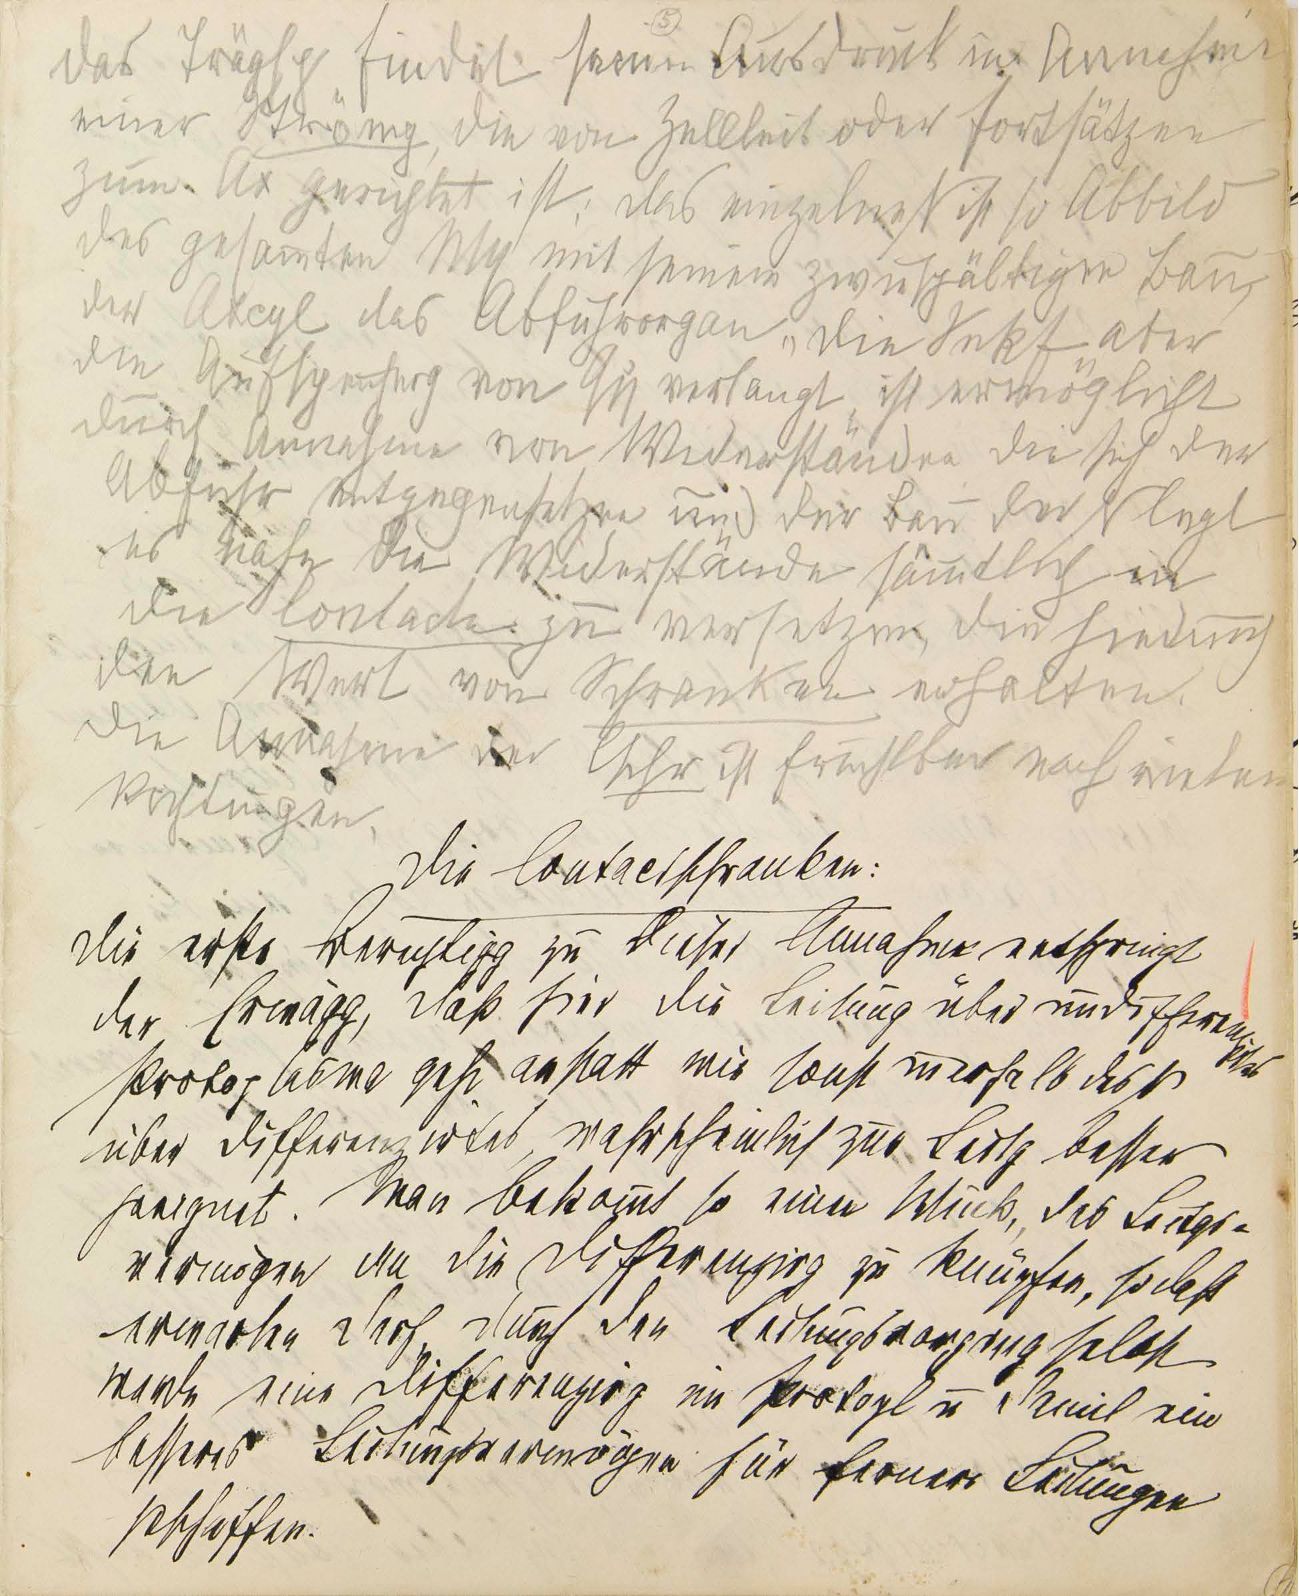 5
das Träghp findet seinen Ausdruck in Annahme
einer Ströng, die von Zellleit oder Fortsätzen
zum Ax gerichtet ist; das einzelne N ist so Abbild
des gesamten NSy mit seinem zwiespältigen Bau,
der Axcyl das Abfuhrorgan. Die Sekf aber
die Aufspeicherg von Qή verlangt ist ermöglicht
durch Annahme von Widerständen die sich der
Abfuhr entgegensetzen und der Bau der N legt
es nahe die Widerstände sämtlich in
die Contacte zu versetzen, die hiedurch
den Wert von Schranken erhalten.
Die Annahme der Cschr ist fruchtbar nach vielen
Richtungen.
Die Contactschranken:
Die erste Berechtigg zu dieser Annahme entspringt
der Erwägg, daß hier die Leitung über undifferenzirtes
Protoplasma geht anstatt wie sonst innerhalb des N
über differenzirtes, wahrscheinlich zur Leitg besser
geeignet. Man bekomt so einen Wink, das Leitgs-
vermögen an die Differenzirg zu knüpfen, so daß
erwarten darf, durch den Leitungsvorgang selbst
werde eine Differenzirg im Protopl u damit ein
besseres Leitungsvermögen für fernere Leitungen
geschaffen.